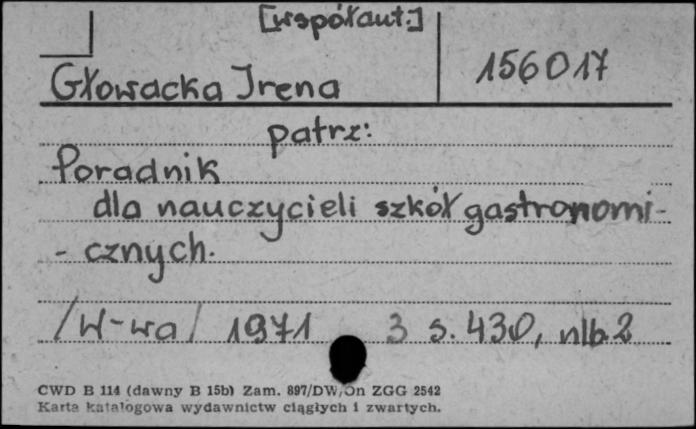 [współaut.]
Głowacka Irena
156017
patrz:
Poradnik
dla nauczycieli szkół gastronomi-
- cznych.
/W-wa/ 1971 3 s. 430, nlb. 2
CWD B 114 (dawny B 15b) Zam. 897/DW/On ZGG 2542
Karta katalogowa wydawnictw ciągłych i zwartych.